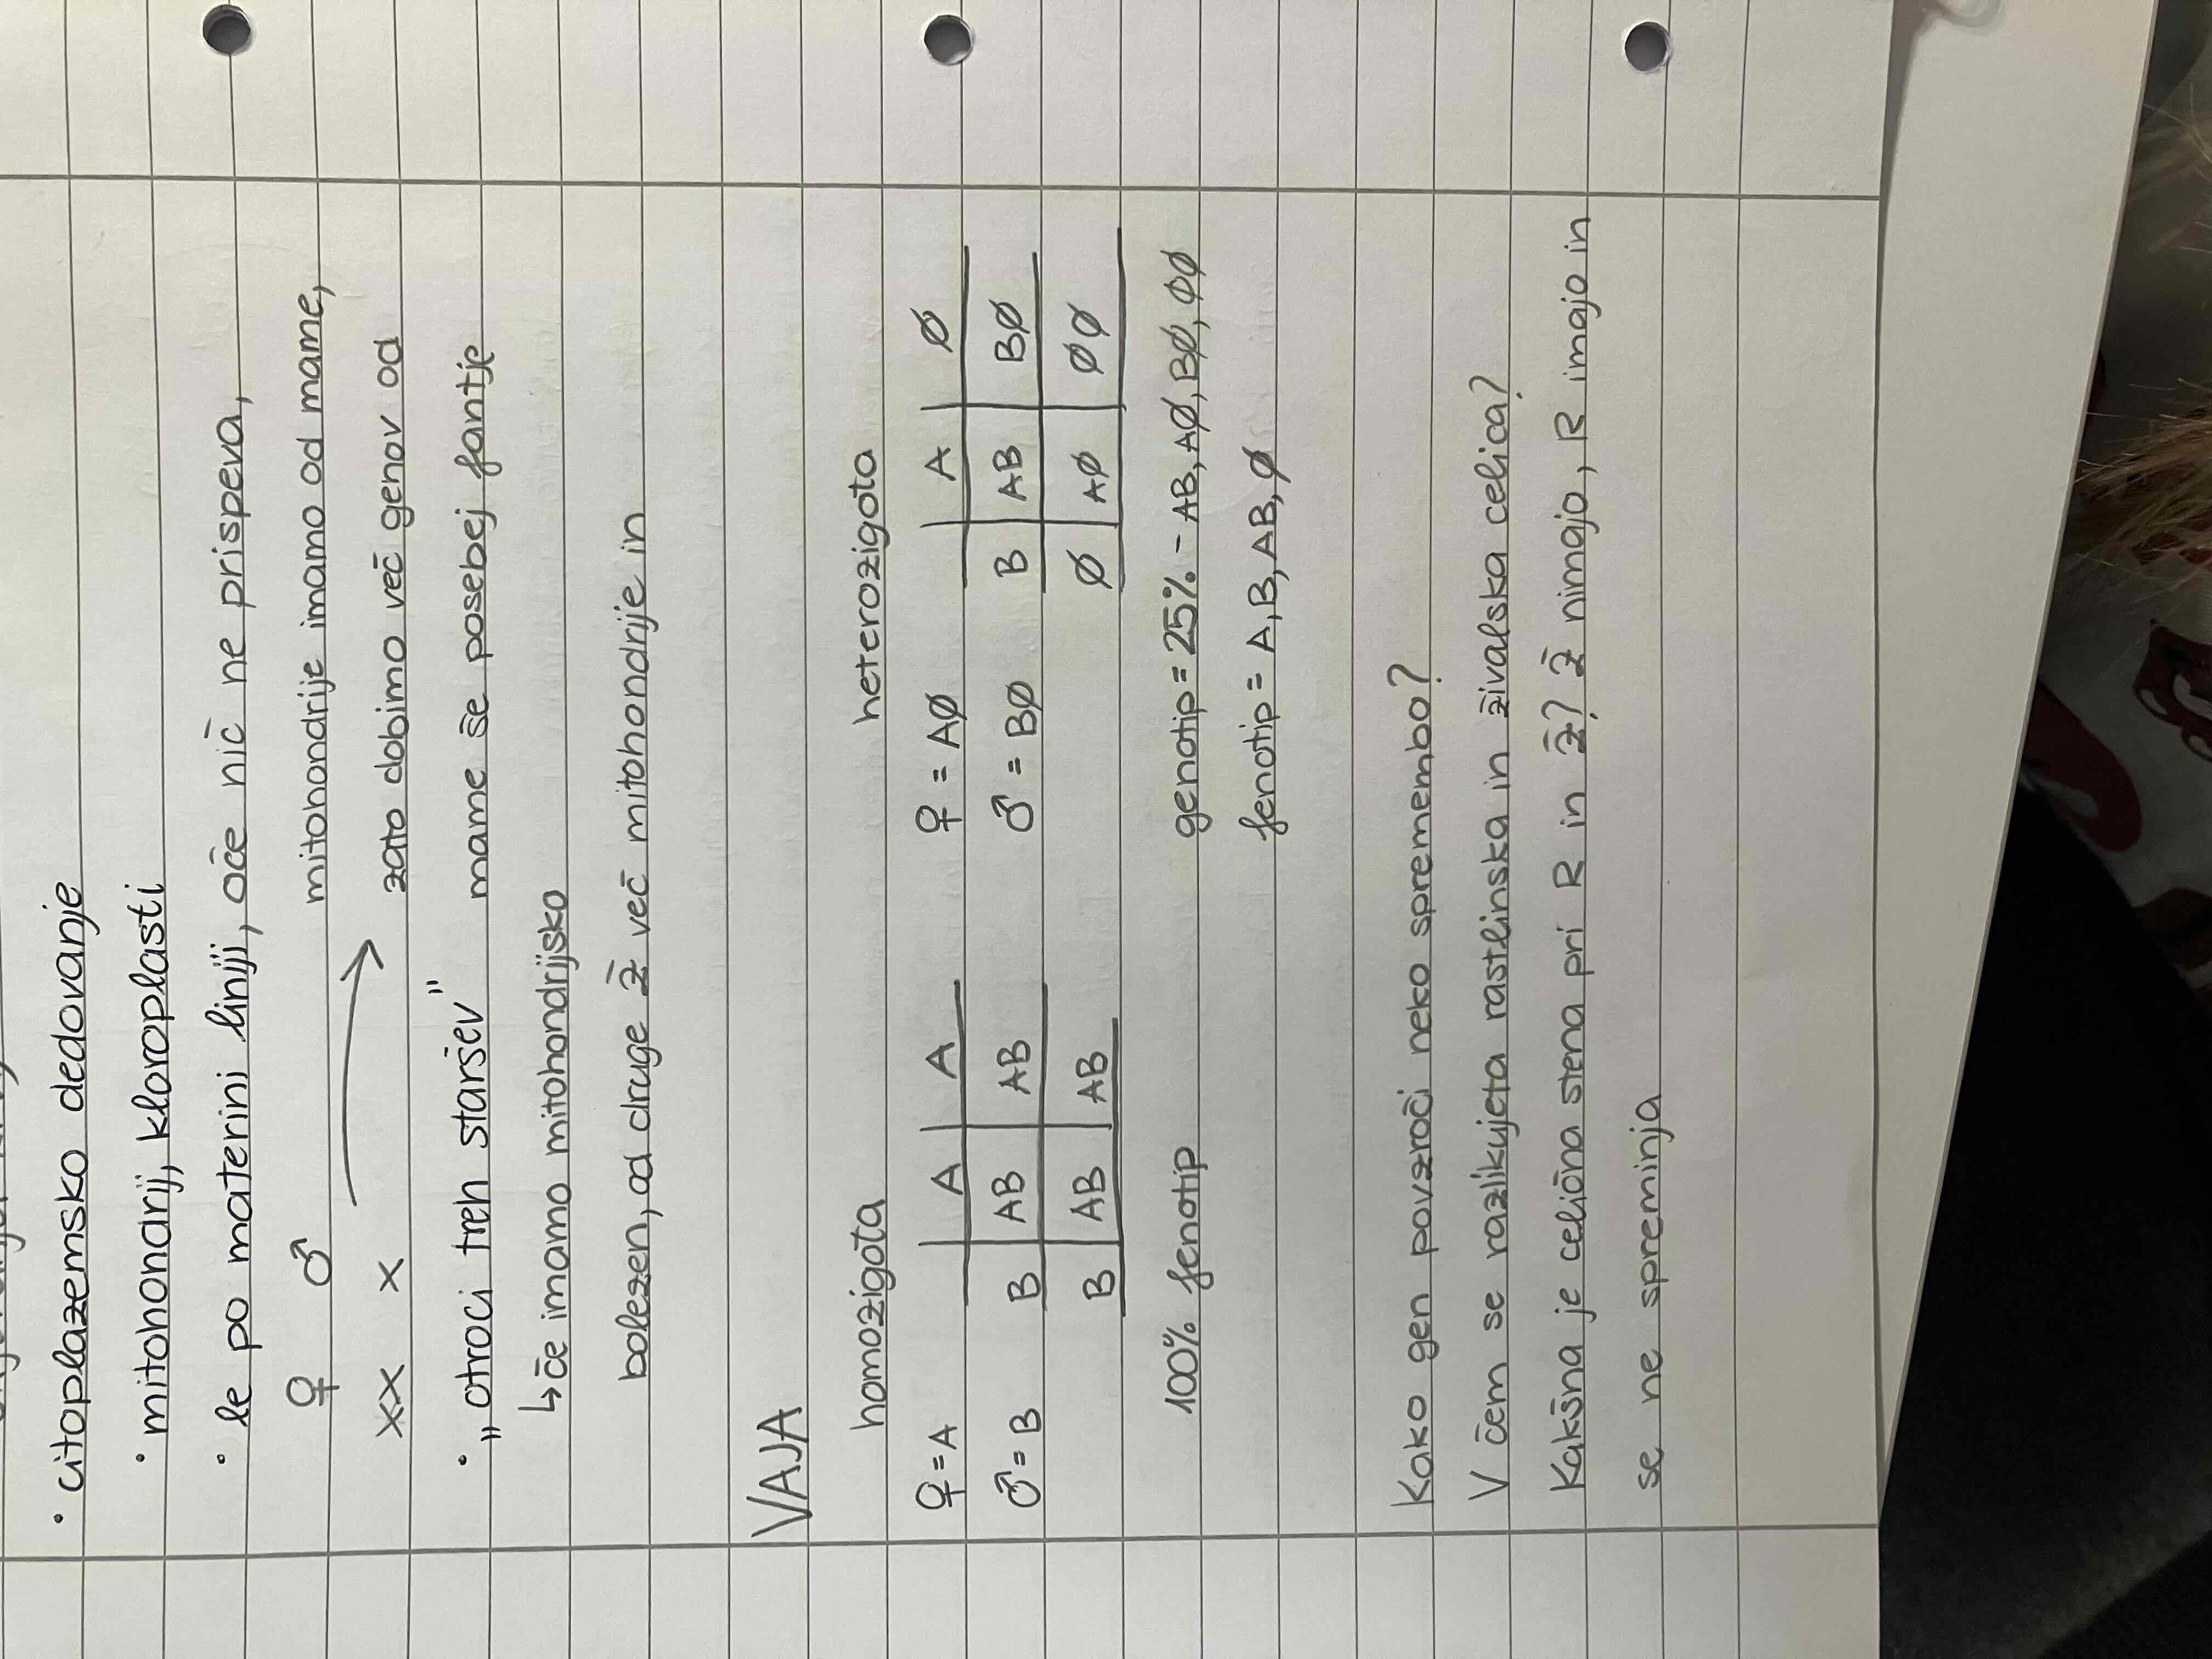 • citoplazemsko dedovanje
• mitohondrij, kloroplasti
• le po materini liniji, oče nič ne prispeva,
♀ ♂ mitohondrije imamo od mame,
XX X → zato dobimo več genov od
• „otroci treh staršev" mame še posebej fantje
↳ če imamo mitohondrijsko
bolezen, od druge Ž več mitohondrije in
VAJA
homozigota heterozigota
♀ = A A A ♀ = AØ A Ø
♂ = B B AB AB ♂ = BØ B AB BØ
B AB AB Ø AØ ØØ
100% fenotip genotip = 25% - AB, AØ, BØ, ØØ
fenotip = A, B, AB, Ø
Kako gen povzroči neko spremembo?
V čem se razlikujeta rastlinska in živalska celica?
Kakšna je celična stena pri R in Ž? Ž nimajo, R imajo in
se ne spreminja